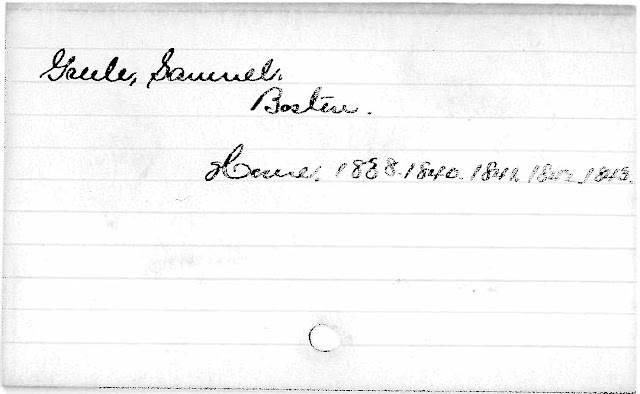 Samuel.
Boston.
House, 1838. 1840. 1841, 1842, 1843.